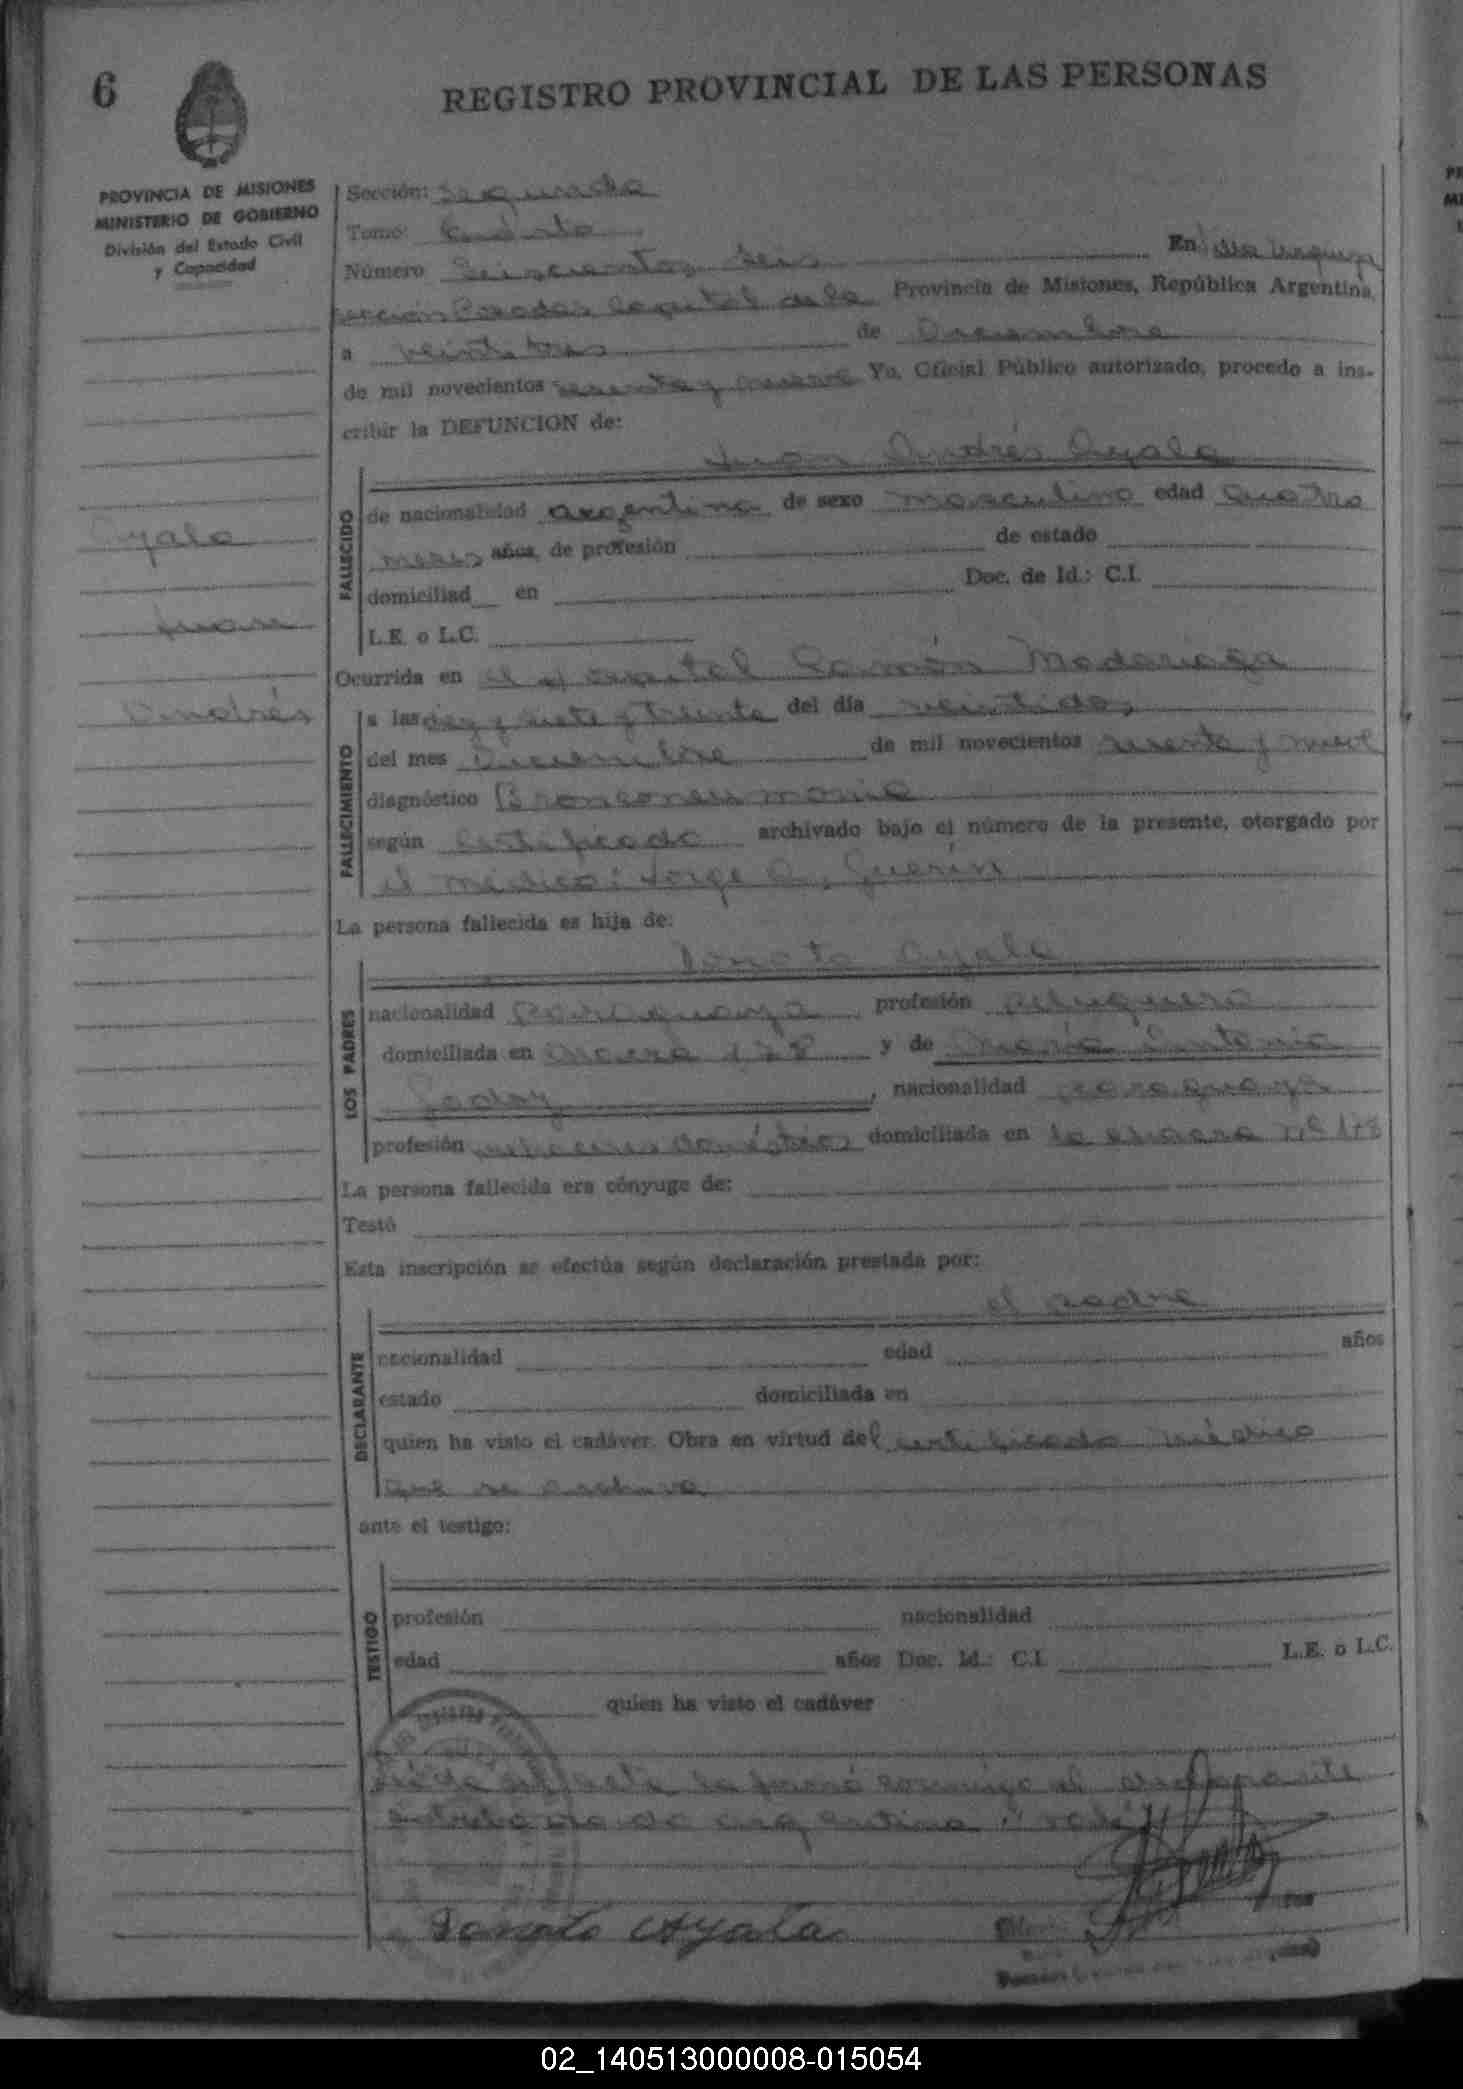 6
REGISTRO PROVINCIAL DE LAS PERSONAS
PROVINCIA DE MISIONES
MINISTERIO DE GOBIERNO
División del Estado Civil
y Capacidad
Sección: Segunda
Tomo: Cuarto
Número Seiscientos seis En Villa Urquiza
sección Posadas Capital de la Provincia de Misiones, República Argentina,
a veintitres de Diciembre
de mil novecientos sesenta y nueve Yo, Oficial Público autorizado, procedo a ins-
cribir la DEFUNCION de:
Juan Andrés Ayala
Ayala
Juan
Andrés
FALLECIDO
de nacionalidad argentina de sexo masculino edad cuatro
meses años, de profesión de estado
domiciliad en Doc. de Id.: C.I.
L.E. o L.C.
Ocurrida en el Hospital Ramón Madariaga
FALLECIMIENTO
a las diez y siete y treinta del día veintidos
del mes Diciembre de mil novecientos sesenta y nueve
diagnóstico Bronconeumonia
según certificado archivado bajo el número de la presente, otorgado por
el médico: Jorge A. Guerin
La persona fallecida es hija de:
Donato Ayala
LOS PADRES
nacionalidad Paraguaya, profesión peluquero
domiciliada en chacra 178 y de María Antonia
Godoy, nacionalidad paraguaya
profesión quehaceres domésticos domiciliada en la chacra Nº 178
La persona fallecida era cónyuge de:
Testó
Esta inscripción se efectúa según declaración prestada por:
el padre
DECLARANTE
nacionalidad edad años
estado domiciliada en
quien ha visto el cadáver. Obra en virtud del certificado médico
que se archiva
ante el testigo:
TESTIGO
profesión nacionalidad
edad años Doc. Id.: C.I. L.E. o L.C.
quien ha visto el cadáver
Leída el acta la firmó conmigo el declarante
argentina
Donato Ayala
02_140513000008-015054